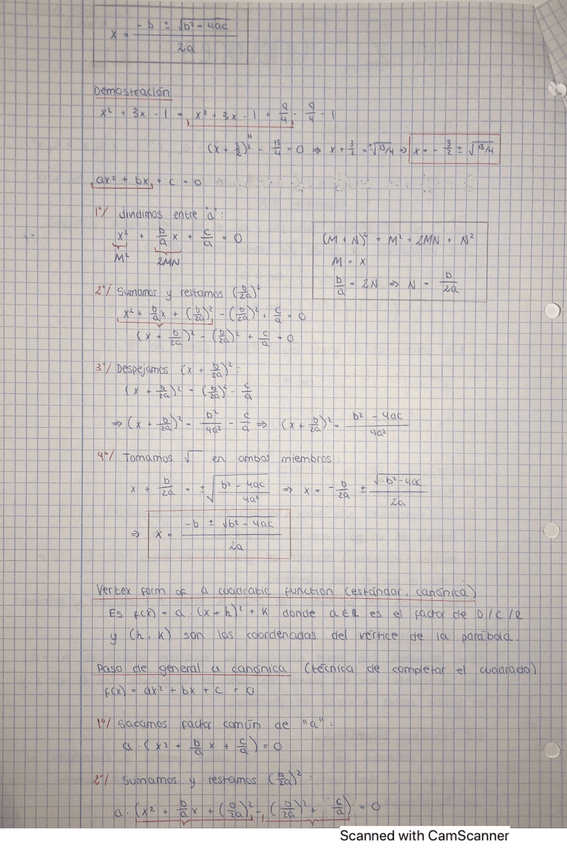 x = (-b ± √(b² - 4ac)) / 2a
Demostración
x² + 3x - 1 = x² + 3x - 1 + 9/4 - 9/4 - 1
(x + 3/2)² - 13/4 = 0 ⇒ x + 3/2 = ±√13/4 ⇒ x = - 3/2 ± √13/4
ax² + bx + c = 0
1º/ dividimos entre "a":
x² + b/a x + c/a = 0
M² 2MN
(M + N)² = M² + 2MN + N²
M = x
b/a = 2N ⇒ N = b/2a
2º/ Sumamos y restamos (b/2a)²
x² + b/a x + (b/2a)² - (b/2a)² + c/a = 0
(x + b/2a)² - (b/2a)² + c/a = 0
3º/ Despejamos (x + b/2a)²:
(x + b/2a)² = (b/2a)² - c/a
⇒ (x + b/2a)² = b²/4a² - c/a ⇒ (x + b/2a)² = (b² - 4ac)/4a²
4º/ Tomamos √ en ambos miembros:
x + b/2a = ±√((b² - 4ac)/4a²) ⇒ x = -b/2a ± √(b² - 4ac)/2a
⇒ x = (-b ± √(b² - 4ac)) / 2a
Vertex form of a cuadratic function (estándar, canónica)
Es f(x) = a (x - h)² + k donde a ∈ R es el factor de D/C/R
y (h, k) son las coordenadas del vértice de la parábola.
Paso de general a canónica (técnica de completar el cuadrado)
f(x) = ax² + bx + c = 0
1º/ Sacamos factor común de "a":
a · (x² + b/a x + c/a) = 0
2º/ Sumamos y restamos (b/2a)²:
a · (x² + b/a x + (b/2a)² - (b/2a)² + c/a) = 0
Scanned with CamScanner